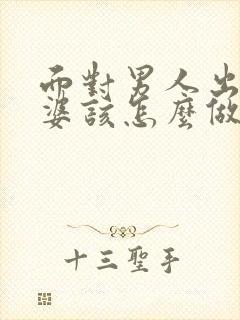 面對男人出
婆該怎麼做
十三聖手